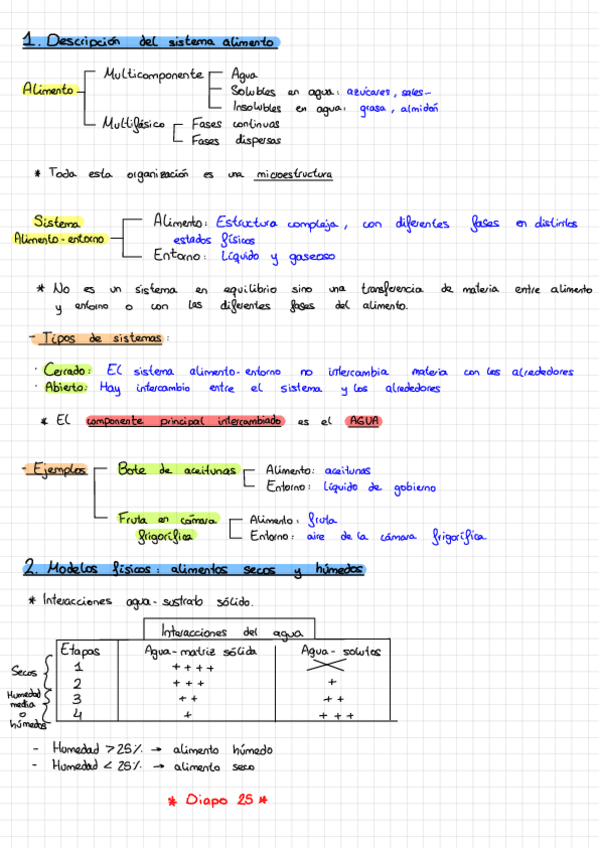 1. Descripción del sistema alimento
Alimento
Multicomponente
Agua
Solubles en agua: azúcares, sales...
Insolubles en agua: grasa, almidón
Multifásico
Fases continuas
Fases dispersas
* Toda esta organización es una microestructura
Sistema
Alimento-entorno
Alimento: Estructura compleja, con diferentes fases en distintos
estados físicos
Entorno: Líquido y gaseoso
* No es un sistema en equilibrio sino una transferencia de materia entre alimento
y entorno o con las diferentes fases del alimento.
- Tipos de sistemas:
· Cerrado: El sistema alimento-entorno no intercambia materia con los alrededores
· Abierto: Hay intercambio entre el sistema y los alrededores
* El componente principal intercambiado es el AGUA
- Ejemplos
Bote de aceitunas
Alimento: aceitunas
Entorno: líquido de gobierno
Fruta en cámara
frigorífica
Alimento: fruta
Entorno: aire de la cámara frigorífica
2. Modelos físicos: alimentos secos y húmedos
* Interacciones agua-sustrato sólido.
Interacciones del agua
Etapas Agua-matriz sólida Agua-solutos
Secos
1 ++++
2 +++ +
Humedad
media
o
húmedos
3 ++ ++
4 + +++
- Humedad > 25% → alimento húmedo
- Humedad < 25% → alimento seco
* Diapo 25 *